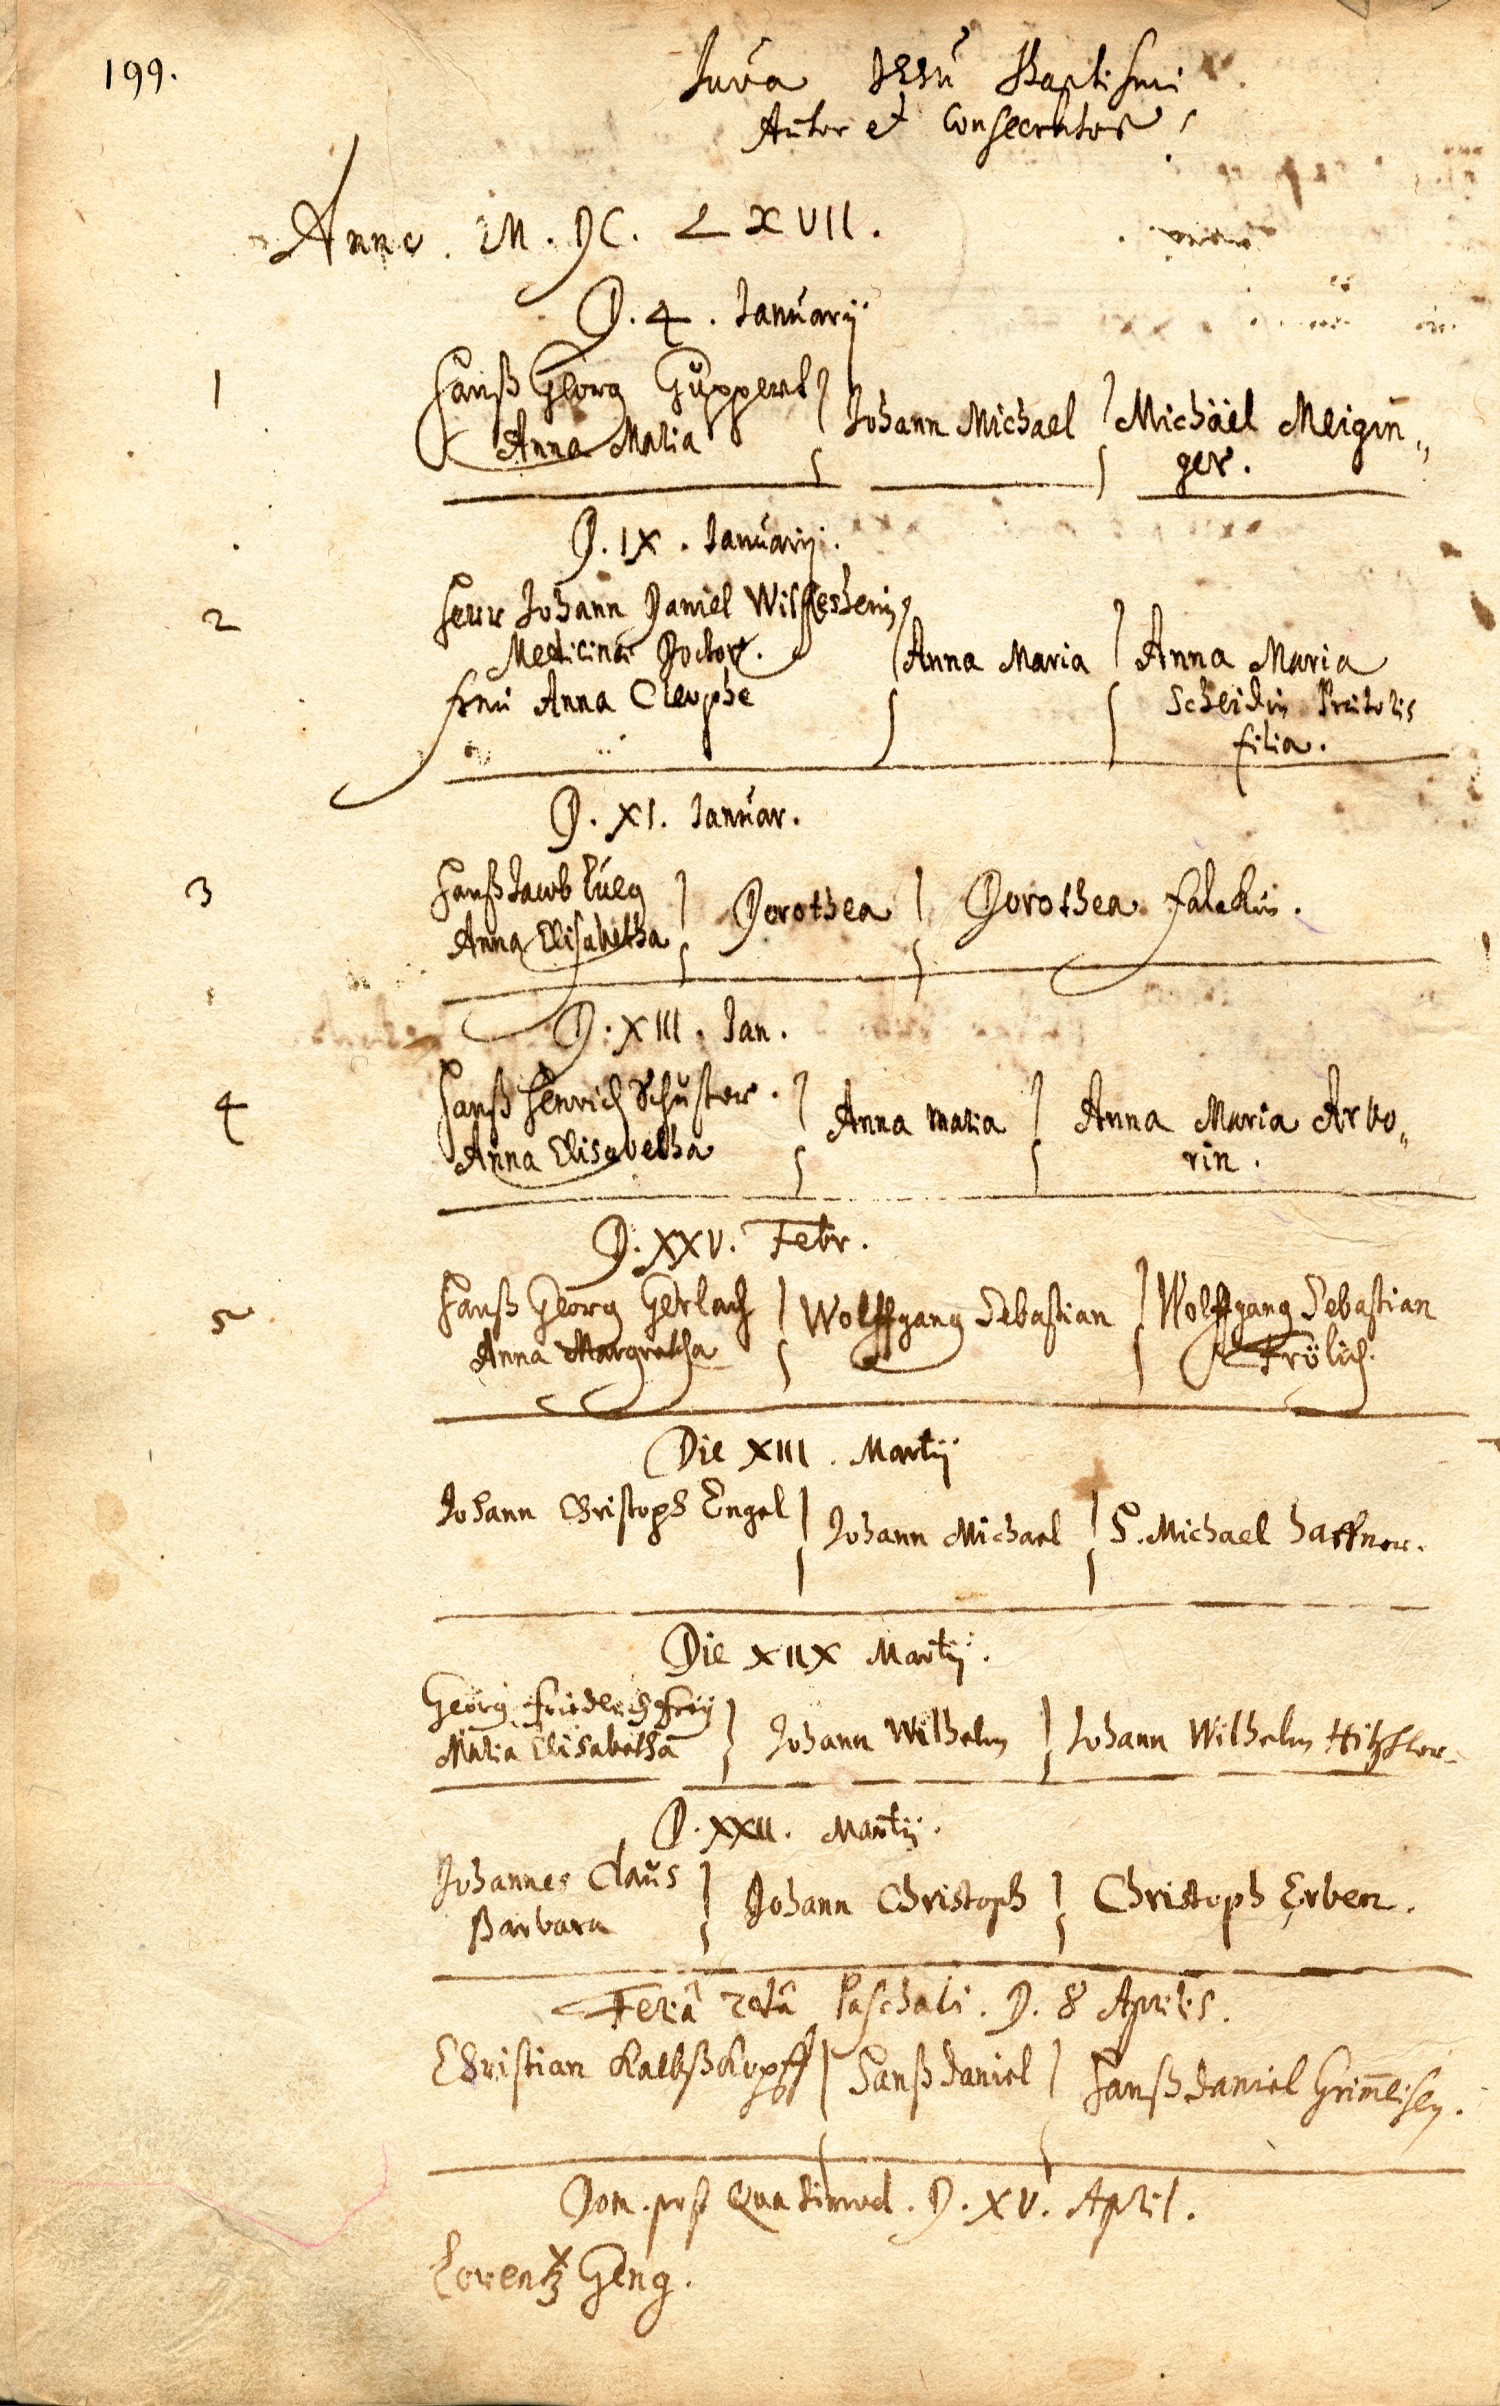 199.
Iuva JESU Baptismi
Autor et Consecrator,
Anno. M. DC. LXVII.
D. 4. Januarÿ
1
Hanß Georg Guppert Johann Michael Michäel Meigin„
Anna Maria ger.
D. IX. Januarÿ.
2
Herr Johann Daniel
Medicinæ Doctor. Anna Maria Anna Maria
Anna Cleophe Scheidin Prætoris
filia.
D. XI. Januar.
3
Hanß Jacob Lueg Dorothea Dorothea Falckin.
Anna Elisabetha
D. XIII. Jan.
4
Hanß Henrich Schuster. Anna Maria Anna Maria Arbo„
Anna Elisabetha rin.
D. XXV. Febr.
5
Hanß Georg Gerlach Wolffgang Sebastian Wolffgang Sebastian
Anna Margretha Frölich.
Die XIII. Martÿ
Johann Christoph Engel Johann Michael H. Michael Haffner.
Die XIIX Martÿ.
Georg Friderich Freÿ Johann Wilhelm Johann Wilhelm Hitzkler.
Maria Elisabetha
D. XXII. Martÿ.
Johannes Claus Johann Christoph Christoph Erben.
Barbara
Feriâ 2dâ Paschali. D. 8 Aprilis.
Christian Kalbßkopff Hanß Daniel Hanß Daniel Grim̄eisen.
Dom. post Quasimod. D. XV. April.
Lorentz Geng.